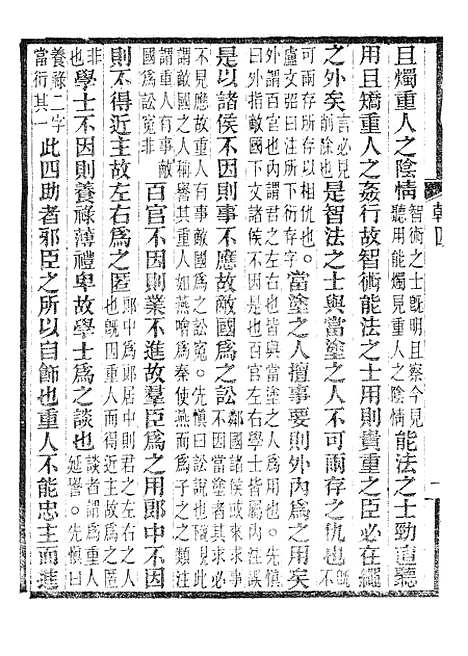 且燭重人之陰情智術之士既明且察今見聽用能燭見重人之陰情能法之士勁直聽
用且矯重人之姦行故智術能法之士用則貴重之臣必在繩
之外矣言必見削除也是智法之士與當塗之人不可兩存之仇也既不
可兩存所存以相仇也〇盧文弨曰注所下衍存字當塗之人擅事要則外內爲之用矣
外謂百官也內謂君之左右也皆與當塗之人爲用也〇先愼曰外指敵國下文諸侯不因是百官左右學士皆屬內注誤
是以諸侯不因則事不應故敵國爲之訟鄰國諸侯或來求事不因當塗者其求必
不見應故重人有事敵國爲之訟寃〇先愼曰訟說也襪謂敵國之人稱譽之若下文所言如燕噲爲秦使燕而爲子之之類注
國爲訟寃非百官不因則業不進故羣臣爲之用郎中不因
則不得近主故左右爲之匿郎中爲郎居中則君之左右也既四重人而得近主故爲之匿
非也學士不因則養祿薄禮卑故學士爲之談也談者謂爲重人延譽〇先愼曰
養祿二字當衍其一此四助者邪臣之所以自飾也重人不能忠主而進
韓四
一